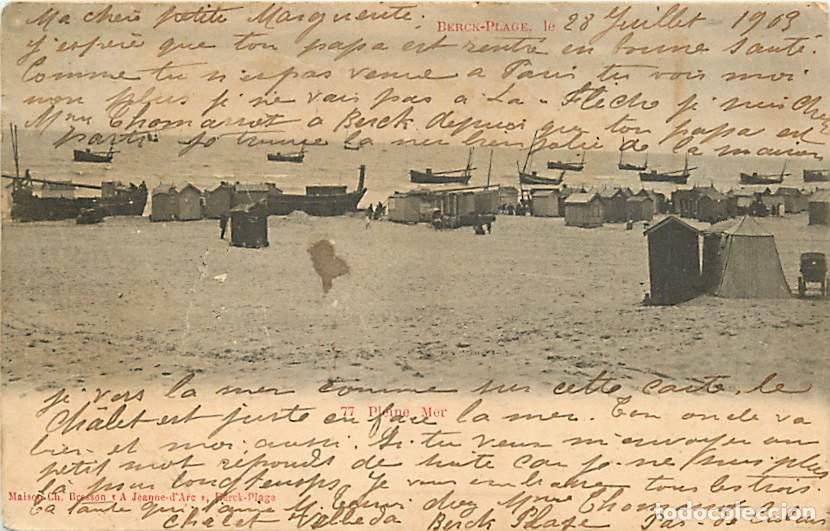 Ma chère petite Marguerite.
BERCK-PLAGE, le 28 Juillet 1903
J'espère que ton papa est rentré en bonne santé.
Comme tu n'es pas venue à Paris tu vois moi
non plus je ne vais pas à La-Flèche je suis chez
Mme Thomassot à Berck depuis que ton papa est
parti je trouve la mer bien jolie de la maison
je vois la mer comme sur cette carte, le
77 Pleine Mer
Châlet est juste en face la mer. Ton oncle va
bien et moi aussi. Si tu veux m'envoyer un
petit mot réponds de suite car je ne suis plus
là pour longtemps. Je vous embrasse tous les trois
Maison Ch. Bresson « A Jeanne-d'Arc », Berck-Plage
Ta tante qui t'aime chez Mme
Chalet Velleda Berck Plage
todocoleccion.net